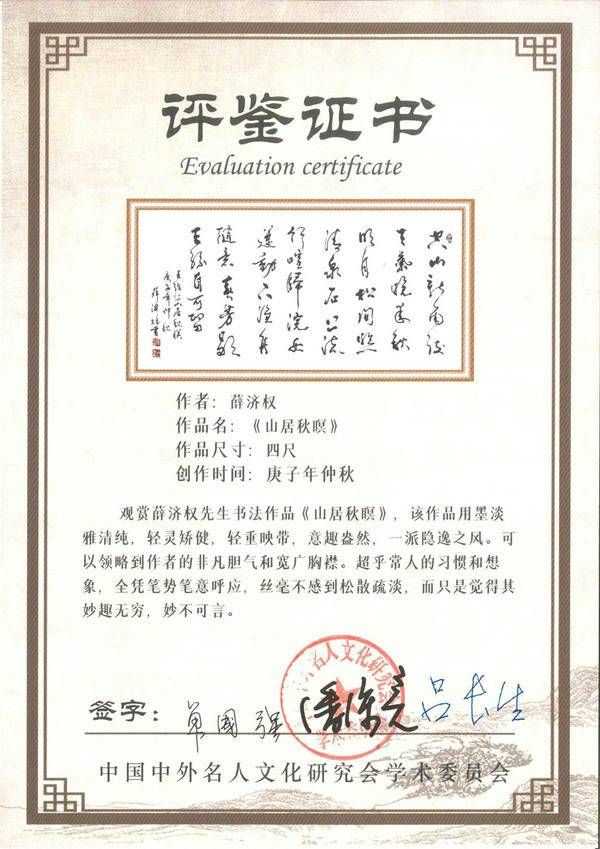 评鉴证书
Evaluation certificate
空山新雨後
天氣晚来秋
明月松间照
清泉石上流
竹喧歸浣女
莲動下渔舟
随意春芳歇
王孙自可留
王维山居秋暝
庚子年仲秋
薛济权书
作者：薛济权
作品名：《山居秋暝》
作品尺寸：四尺
创作时间：庚子年仲秋
观赏薛济权先生书法作品《山居秋暝》，该作品用墨淡
雅清纯，轻灵矫健，轻重映带，意趣盎然，一派隐逸之风。可
以领略到作者的非凡胆气和宽广胸襟。超乎常人的习惯和想
象，全凭笔势笔意呼应，丝毫不感到松散疏淡，而只是觉得其
妙趣无穷，妙不可言。
名人文化研究会
签字：单國强 潘深亮 吕长生
中国中外名人文化研究会学术委员会